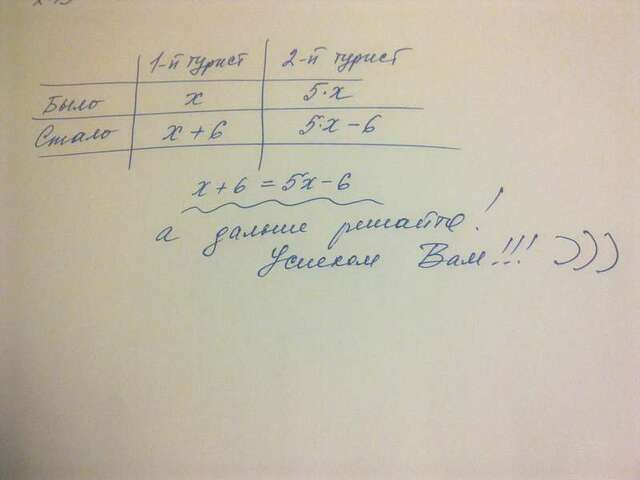 1-й турист 2-й турист
Было x 5·x
Стало x + 6 5·x – 6
x + 6 = 5x – 6
а дальше решайте!
Успехом Вам!!! )))